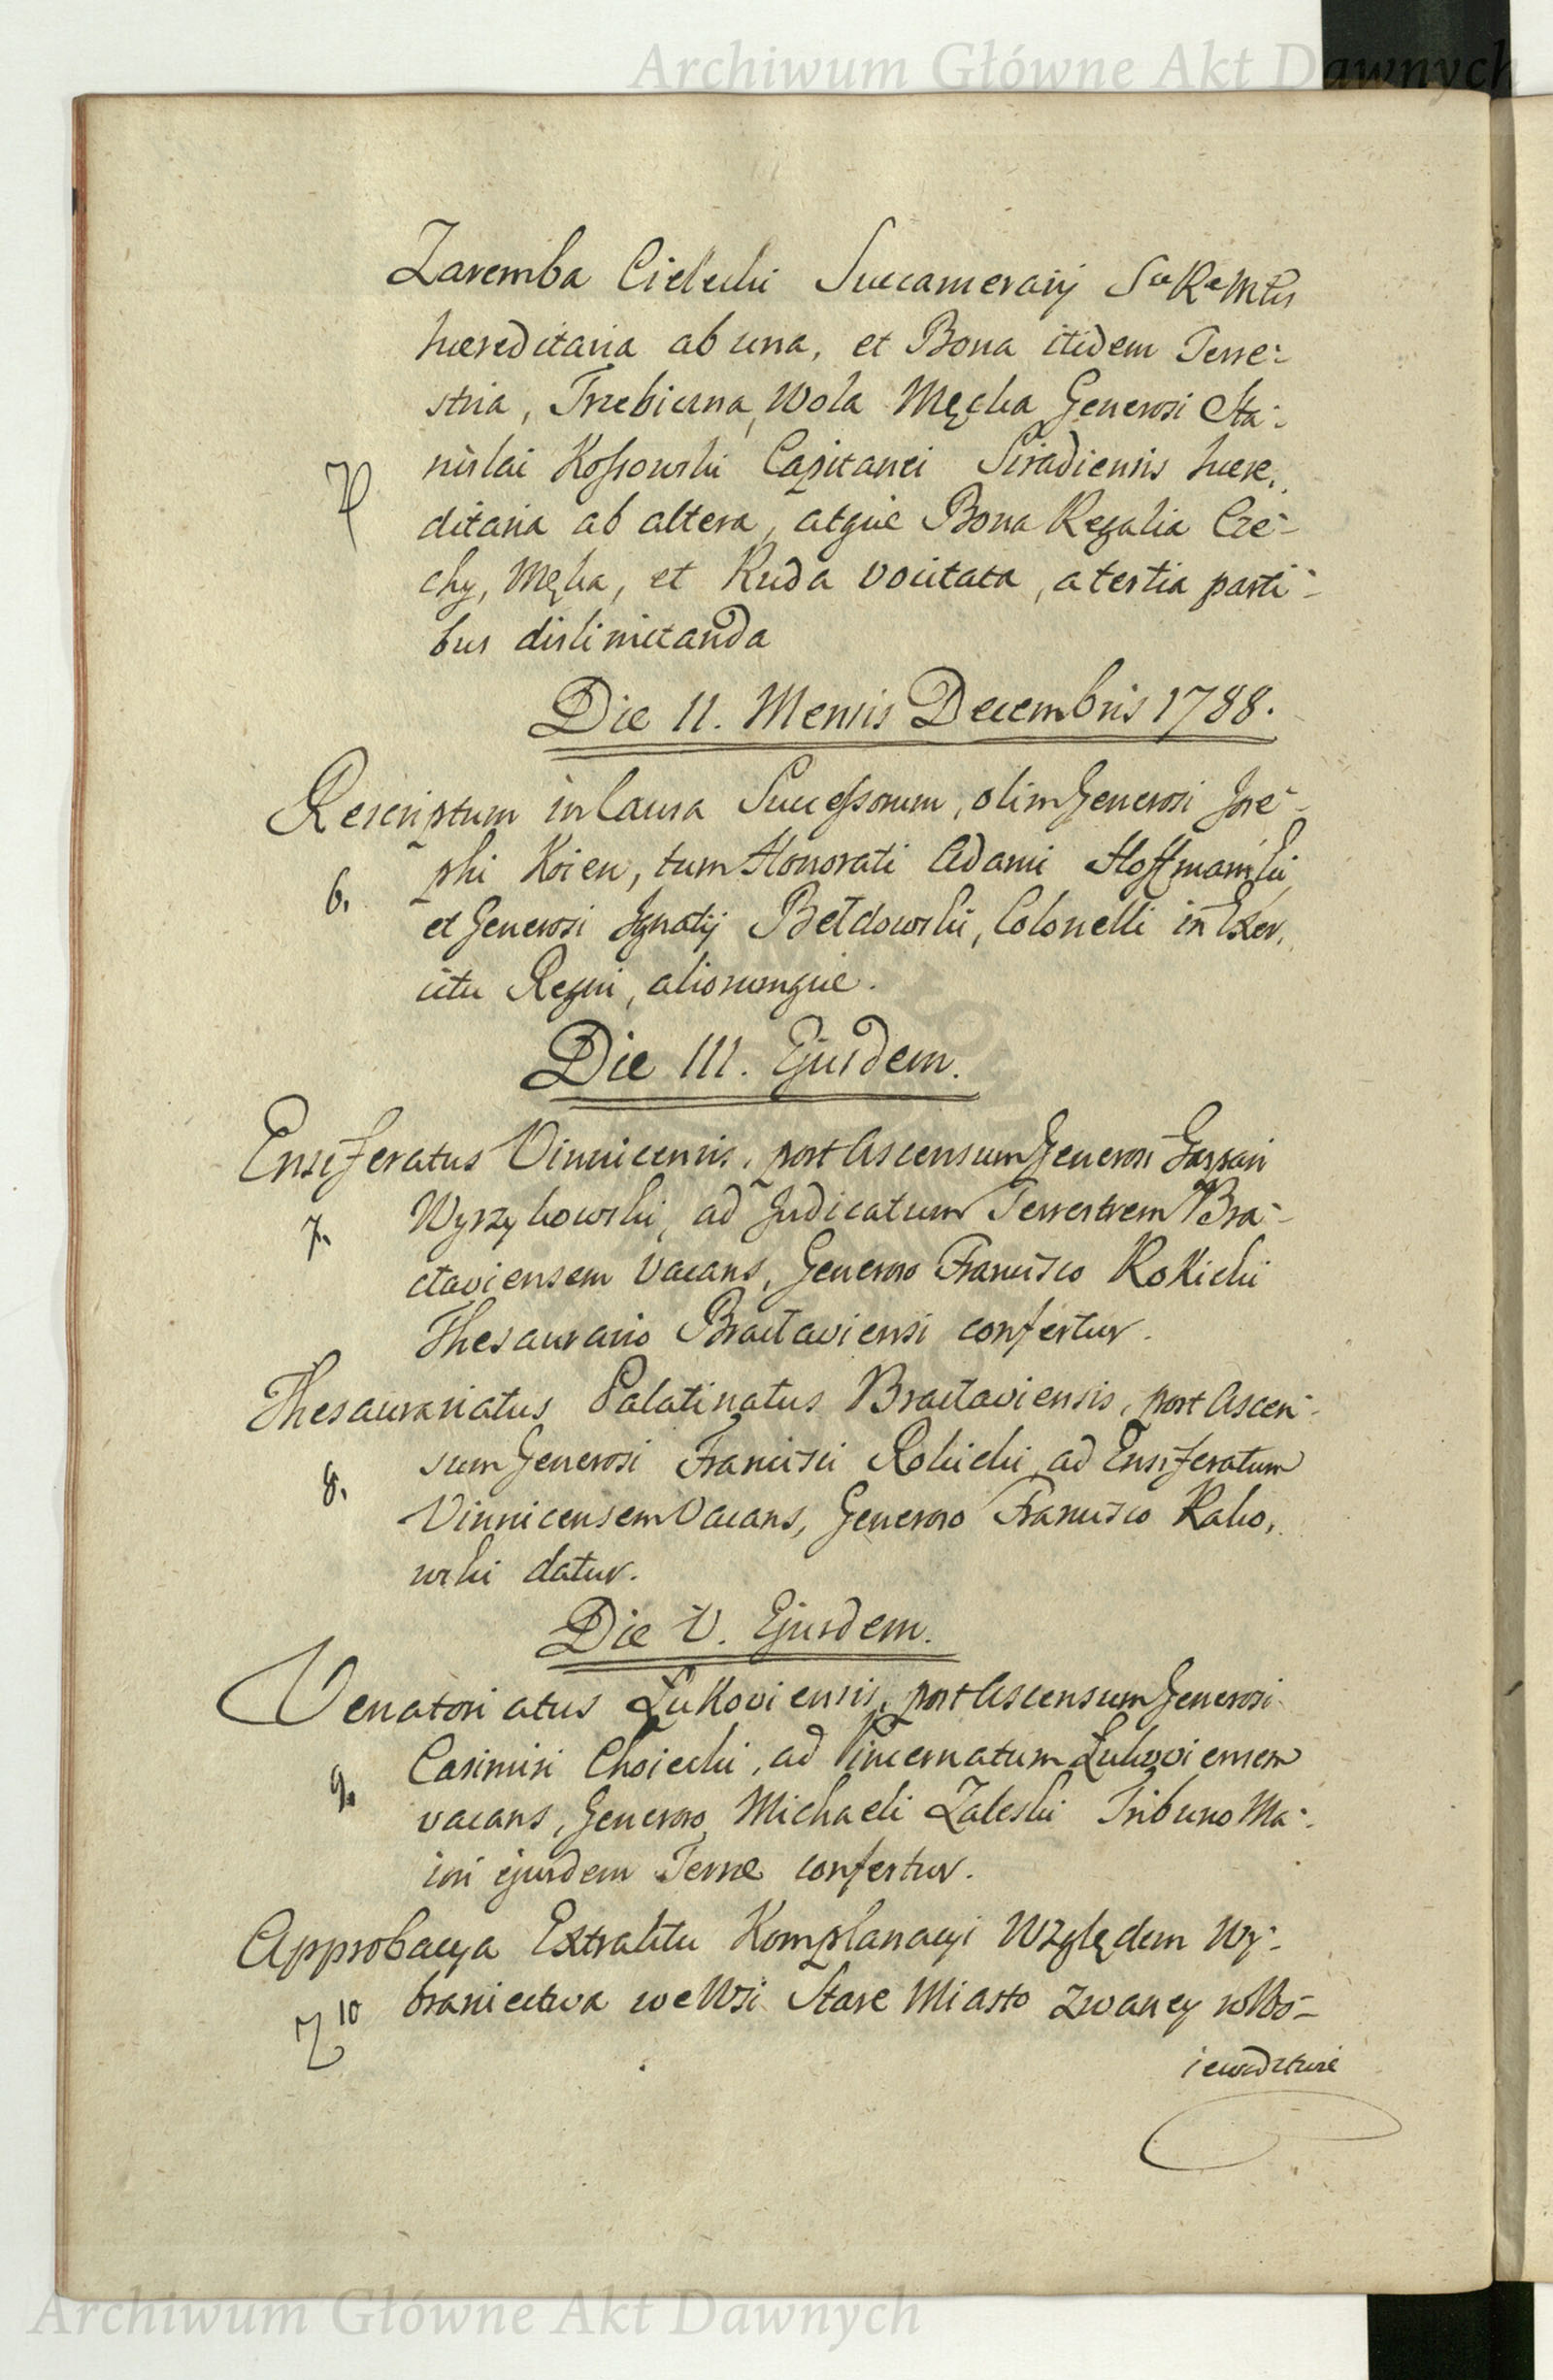 Archiwum Główne Akt Dawnych
Zaremba Cielecki Succamerarij Sae Rae Mtis
hæreditaria ab una, et Bona itidem Terre-
stria, Trzebiczna, Wola Męcka Generosi Sta-
nislai Kossowski Capitanei Siradiensis hære-
ditaria ab altera, atque Bona Regalia Cze-
chy, Męka, et Ruda vocitata, a tertia parti-
bus dislimitanda
Die II. Mensis Decembris 1788.
Rescriptum in Causa Successorum, olim Generosi Jose-
6. phi Koien, tum Honorati Adami Hoffmanski,
et Generosi Ignatij Bełdowski, Colonelli in Exer-
citu Regni, aliorumque.
Die III. Ejusdem.
Ensiferatus Vinnicensis, post Ascensum Generosi Gaspari
7. Wyrzykowski, ad Judicatum Terrestrem Bra-
ctaviensem vacans, Generoso Francisco Rokicki
Thesaurario Bractaviensi confertur.
Thesaurariatus Palatinatus Bractaviensis, post Ascen-
8. sum Generosi Francisci Rokicki ad Ensiferatum
Vinnicensem vacans, Generoso Francisco Rako-
wski datur.
Die V. Ejusdem.
Venatoriatus Łukoviensis, post Ascensum Generosi
9. Casimiri Choiecki, ad Pincernatum Łukoviensem
vacans, Generoso Michaeli Zaleski Tribuno Ma-
iori ejusdem Terræ confertur.
Approbacya Extraktu Komplanacyi Względem Wy-
10 braniectwa we Wsi Stare Miasto zwaney w Wo-
iewodztwie
Archiwum Główne Akt Dawnych